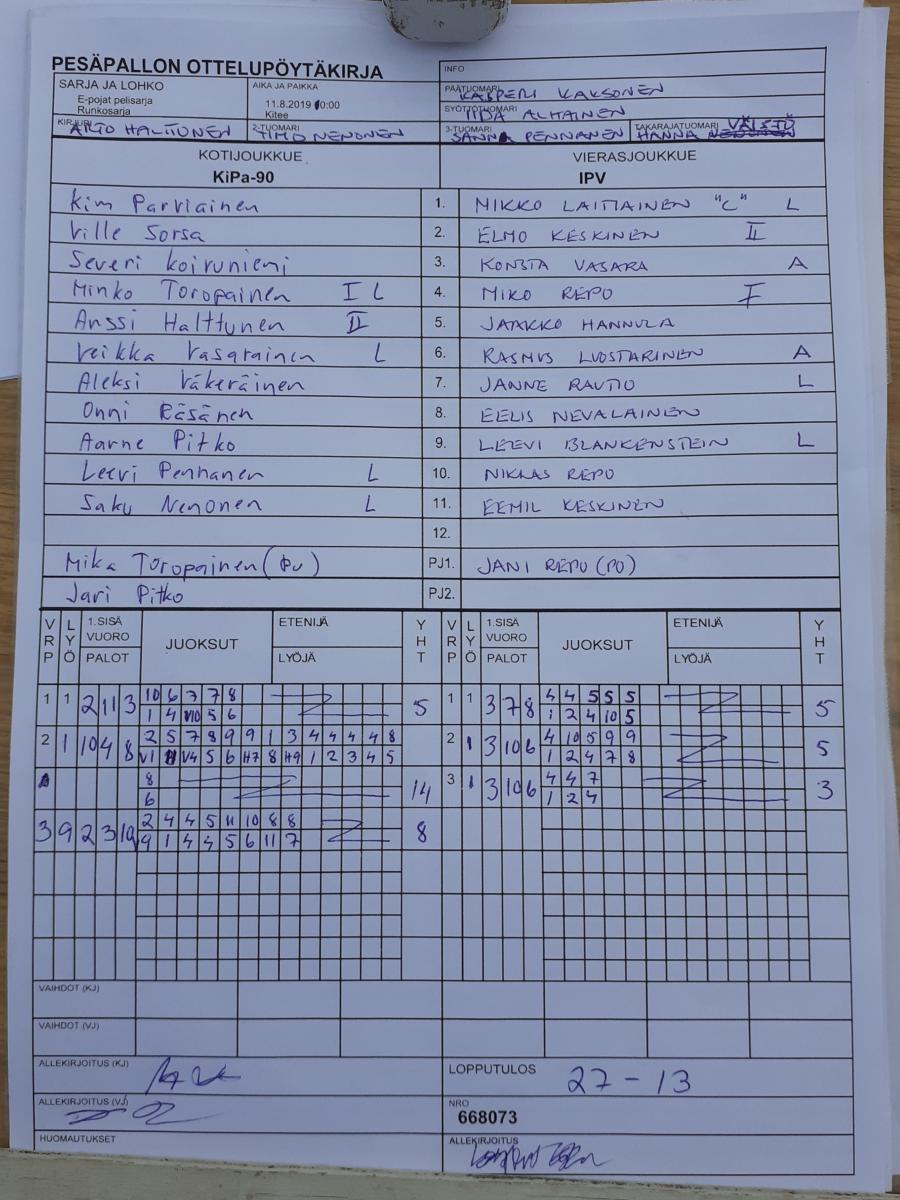 PESÄPALLON OTTELUPÖYTÄKIRJA
INFO
SARJA JA LOHKO
E-pojat pelisarja
Runkosarja
AIKA JA PAIKKA
11.8.2019 10:00
Kitee
PÄÄTUOMARI KASPERI KAKSONEN
SYÖTTÖTUOMARI IIDA ALHAINEN
KIRJURI ARTO HALTTUNEN
2-TUOMARI TIMO NENONEN
3-TUOMARI SANNA PENNANEN
TAKARAJATUOMARI HANNA VÄISTÖ
KOTIJOUKKUE
KiPa-90
VIERASJOUKKUE
IPV
Kim Parviainen 1. MIKKO LAITIAINEN "C" L
Ville Sorsa 2. ELMO KESKINEN II
Severi Koirunieni 3. KONSTA VASARA A
Minko Toropainen I L 4. MIKO REPO I
Anssi Halttunen II 5. JAAKKO HANNULA
Veikka Vasarainen L 6. RASMUS LUOSTARINEN A
Aleksi Väkeräinen 7. JANNE RAUTIO L
Onni Räsänen 8. EELIS NEVALAINEN
Aarne Pitko 9. LEEVI BLANKENSTEIN L
Leevi Pennanen L 10. NIKLAS REPO
Saku Nenonen L 11. EEMIL KESKINEN
12.
Mika Toropainen (PV) PJ1. JANI REPO (PO)
Jari Pitko PJ2.
VRP LYÖ 1.SISÄ VUORO PALOT JUOKSUT ETENIJÄ LYÖJÄ YHT VRP LYÖ 1.SISÄ VUORO PALOT JUOKSUT ETENIJÄ LYÖJÄ YHT
1 1 2 11 3 10 6 7 7 8 5 1 1 3 7 8 4 4 5 5 5 5
1 4 V10 5 6 1 2 4 10 5
2 1 10 4 8 2 5 7 8 9 9 1 3 4 4 4 4 8 2 1 3 10 6 4 10 5 9 9 5
V1 V4 5 6 H7 8 H9 1 2 3 4 5 1 2 4 7 8
8 14 3 1 3 10 6 4 4 7 3
6 1 2 4
3 9 2 3 10 2 4 4 5 11 10 8 8 8
9 1 4 4 5 6 11 7
VAIHDOT (KJ)
VAIHDOT (VJ)
ALLEKIRJOITUS (KJ)
LOPPUTULOS 27 - 13
ALLEKIRJOITUS (VJ)
NRO
668073
HUOMAUTUKSET
ALLEKIRJOITUS